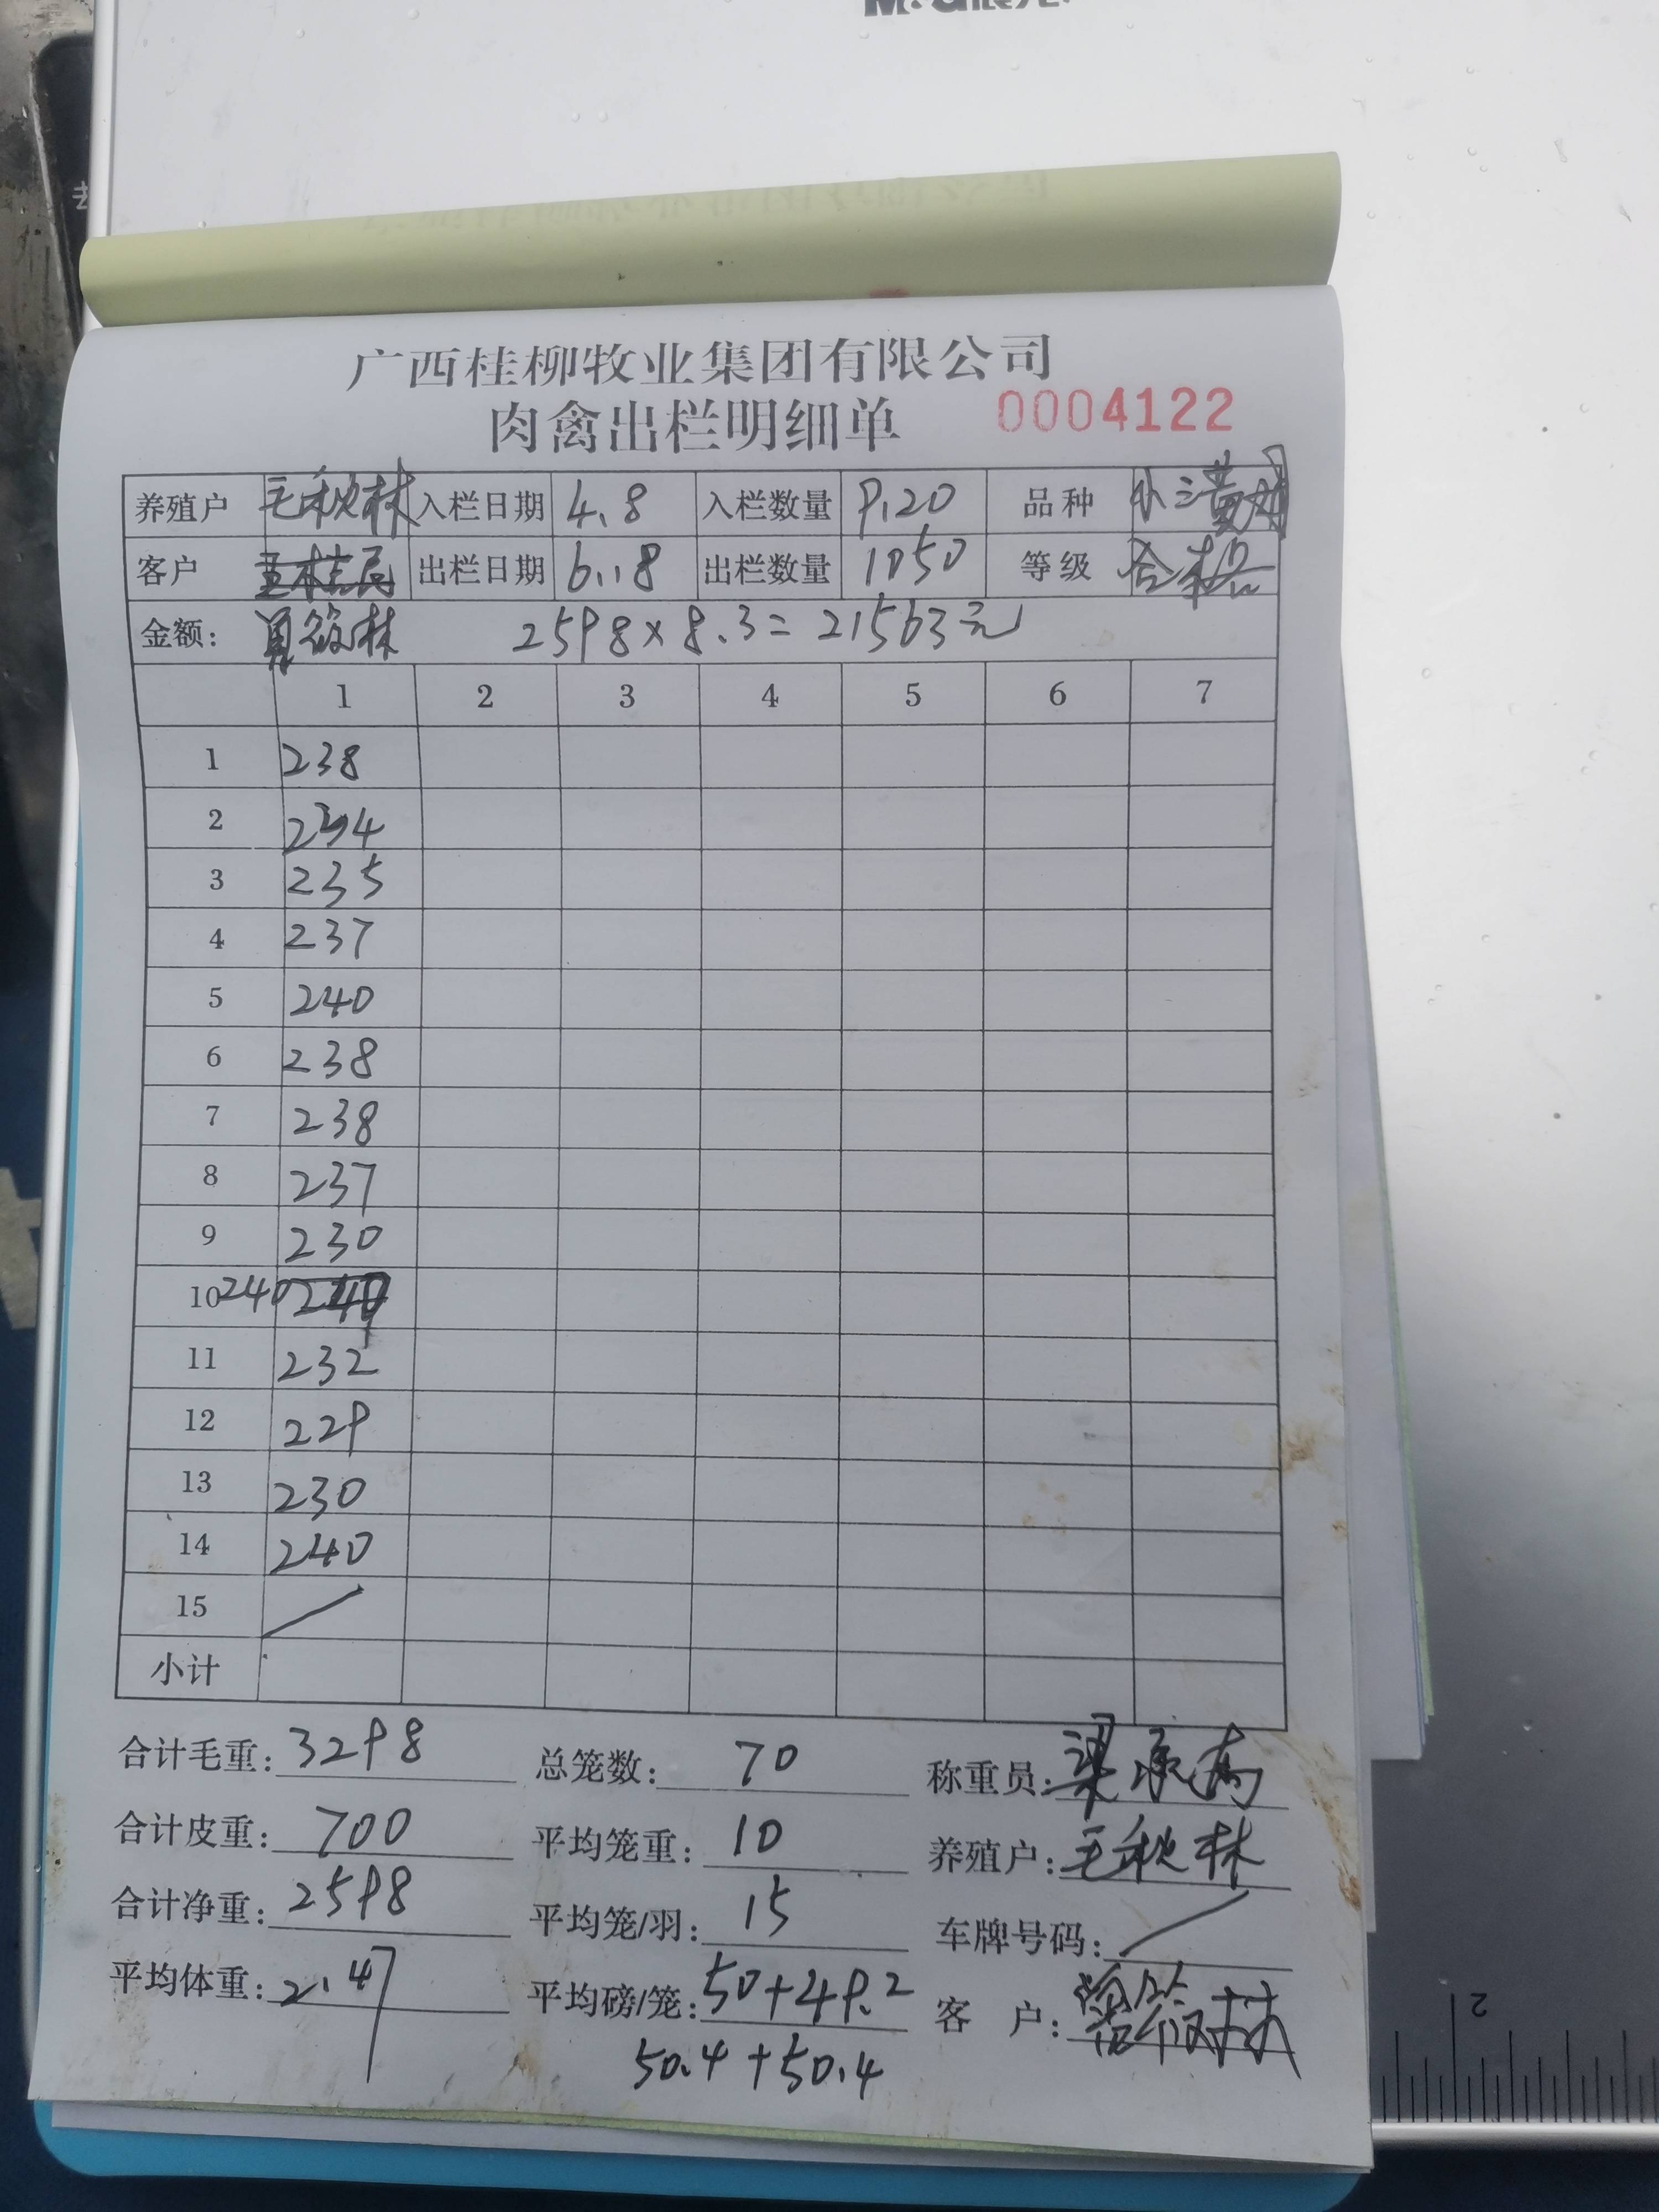 广西桂柳牧业集团有限公司
肉禽出栏明细单 0004122
养殖户 毛秋林 入栏日期 4.8 入栏数量 9120 品种 小三黄
客户 出栏日期 6.18 出栏数量 1050 等级 合格
金额: 筱林 2598×8.3=21563元
1 2 3 4 5 6 7
1 238
2 234
3 235
4 237
5 240
6 238
7 238
8 237
9 230
10 240
11 232
12 229
13 230
14 240
15
小计
合计毛重: 3298 总笼数: 70 称重员: 梁承高
合计皮重: 700 平均笼重: 10 养殖户: 毛秋林
合计净重: 2598 平均笼/羽: 15 车牌号码:
平均体重: 2.47 平均磅/笼: 50+49.2 客 户: 筱林
50.4+50.4
2